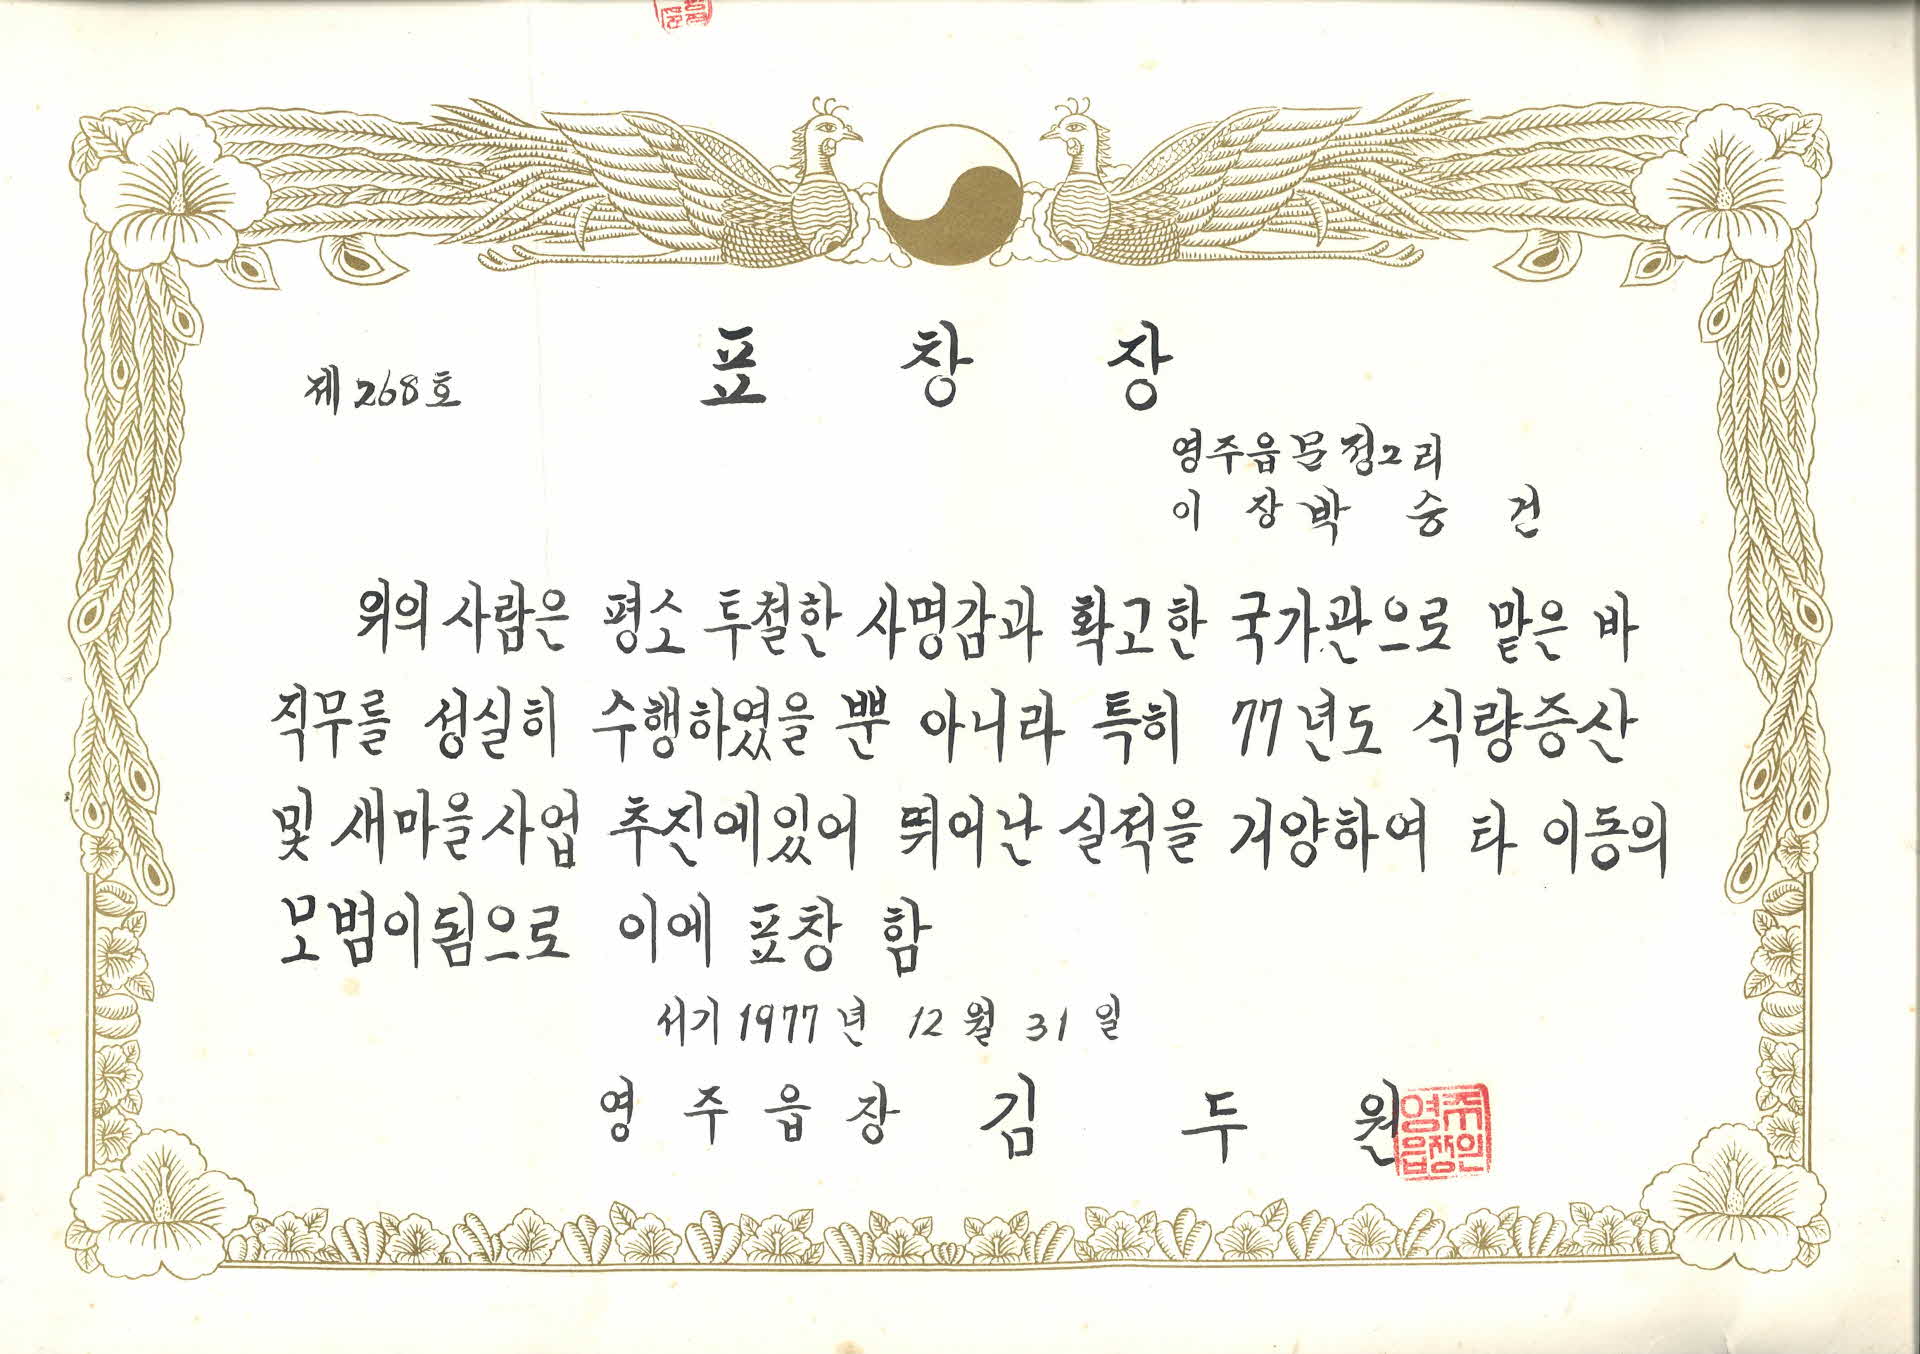 표 창 장
제 268 호
영주읍 문정2리
이 장 박 승 건
위의 사람은 평소 투철한 사명감과 확고한 국가관으로 맡은 바
직무를 성실히 수행하였을 뿐 아니라 특히 77년도 식량증산
및 새마을사업 추진에있어 뛰어난 실적을 거양하여 타 이동의
모범이됨으로 이에 표창 함
서기 1977년 12월 31일
영 주 읍 장 김 두 원
영주
읍장인